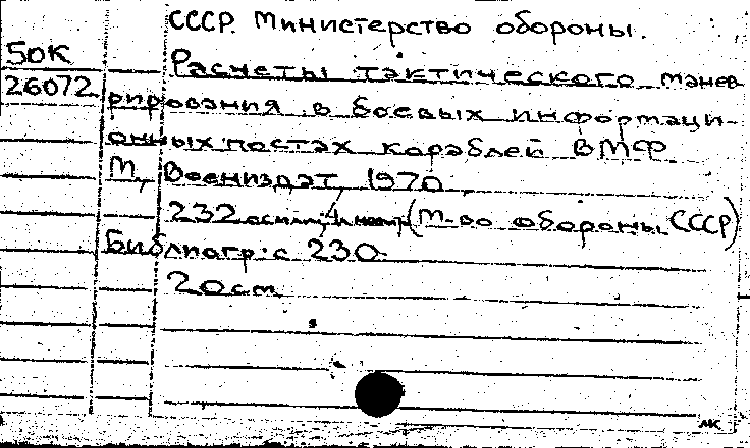 СССР. Министерство обороны.
50К
Расчеты тактического манев
26072
рирования в боевых информаци-
онных постах кораблей ВМФ.
М., Воениздат, 1970.
232 с. (М-во обороны СССР)
Библиогр: с 230.
20 см.
МК